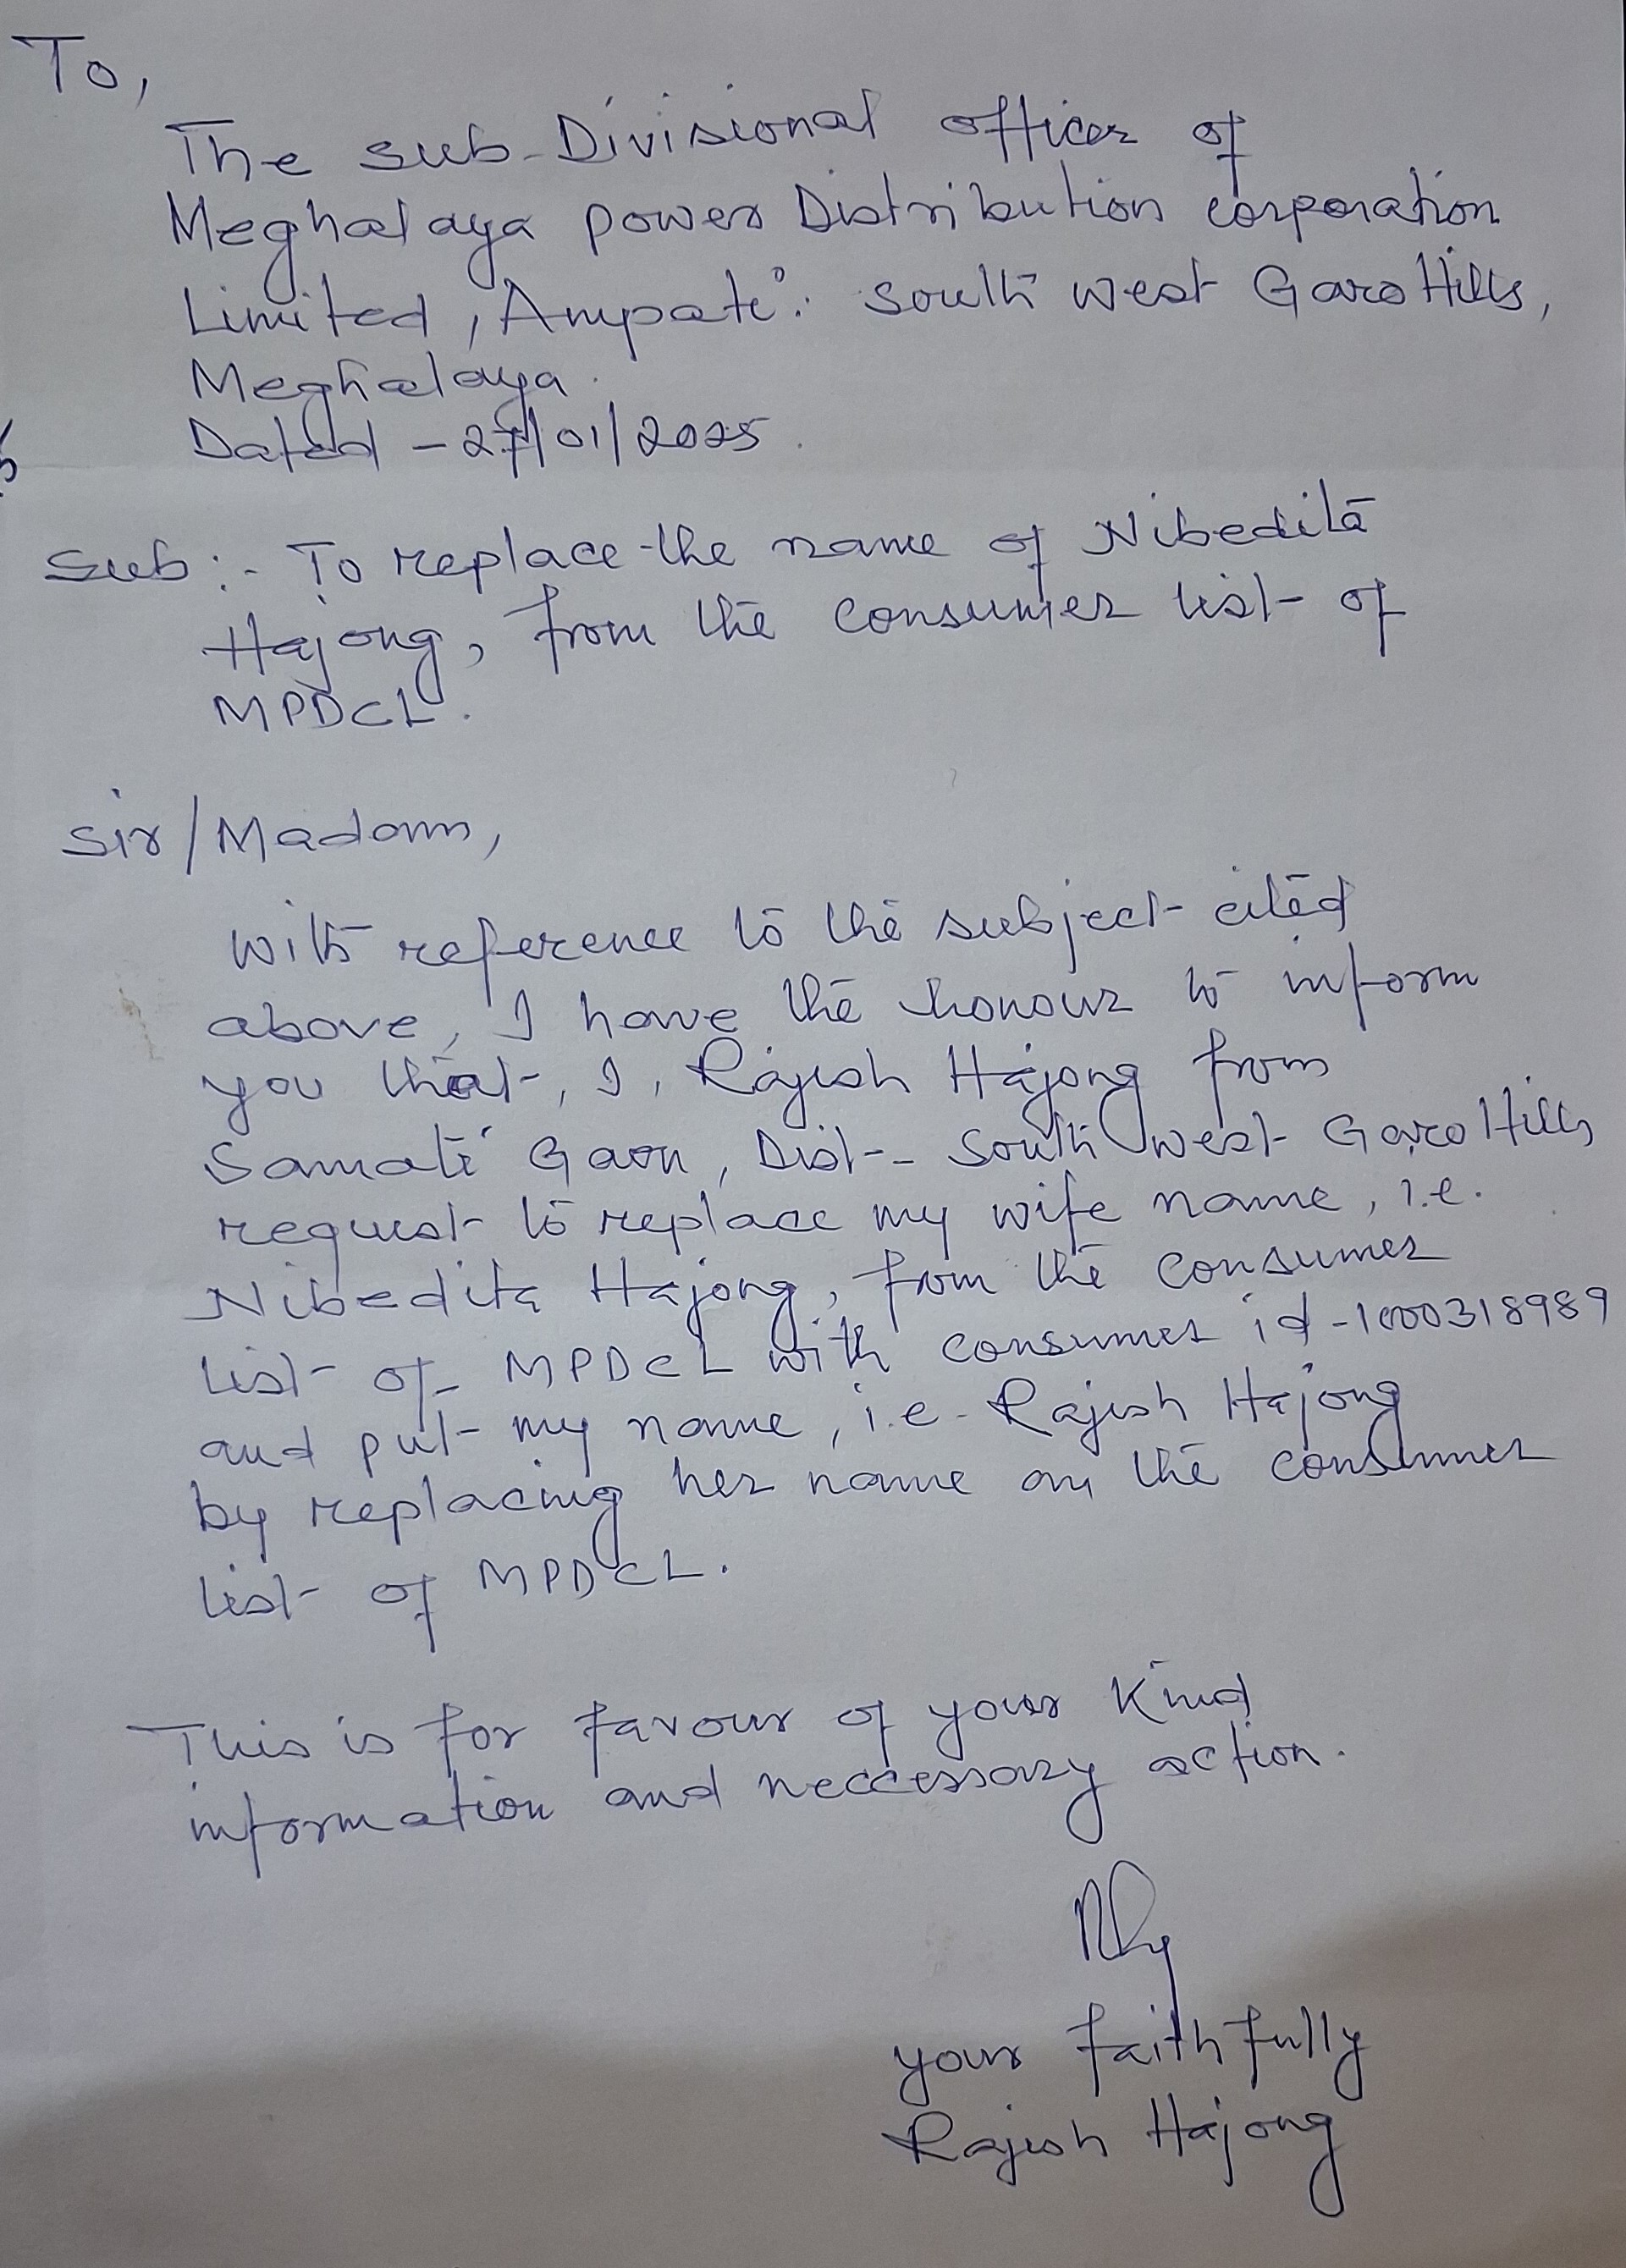 To,
The sub-Divisional officer of
Meghalaya power Distribution corporation
Limited, Ampati: South west Garo Hills,
Meghalaya.
Dated - 27/01/2025.
Sub:- To replace the name of Nibedita
Hajong, from the consumer list of
MPDCL.
Sir/Madam,
with reference to the subject cited
above, I have the honour to inform
you that, I, Rajesh Hajong from
Samati Gaon, Dist-- South west Garo Hills
request to replace my wife name, i.e.
Nibedita Hajong, from the consumer
list of MPDCL with consumer id -1000318989
and put my name, i.e - Rajesh Hajong
by replacing her name on the consumer
list of MPDCL.
This is for favour of your kind
information and neccessary action.
your faithfully
Rajesh Hajong